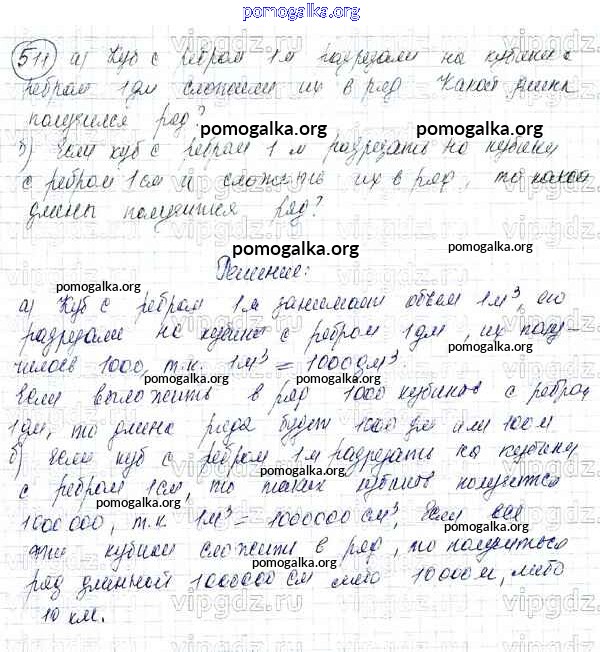 pomogalka.org
511 а) Куб с ребром 1 м разрезали на кубики с
ребром 1 дм сложили их в ряд Какой длины
получился ряд?
pomogalka.org pomogalka.org
б) Если куб с ребром 1 м разрезать на кубики
с ребром 1 см и сложить их в ряд, то какой
длины получится ряд?
pomogalka.org
Решение:
pomogalka.org pomogalka.org
а) Куб с ребром 1 м занимает объем 1 м³, его
разрезали на кубики с ребром 1 дм, их полу-
pomogalka.org
чилось 1000, т.к. 1 м³ = 1000 дм³.
pomogalka.org pomogalka.org
Если выложить в ряд 1000 кубиков с ребром
1 дм, то длина ряда будет 1000 дм или 100 м
б) Если куб с ребром 1 м разрезать на кубики
pomogalka.org
с ребром 1 см, то таких кубиков получится
pomogalka.org
1000000, т.к. 1 м³ = 1000000 см³. Если все
pomogalka.org
эти кубики сложить в ряд, то получиться
pomogalka.org
ряд длинной 1000000 см либо 10000 м, либо
10 км.
vipgdz.ru